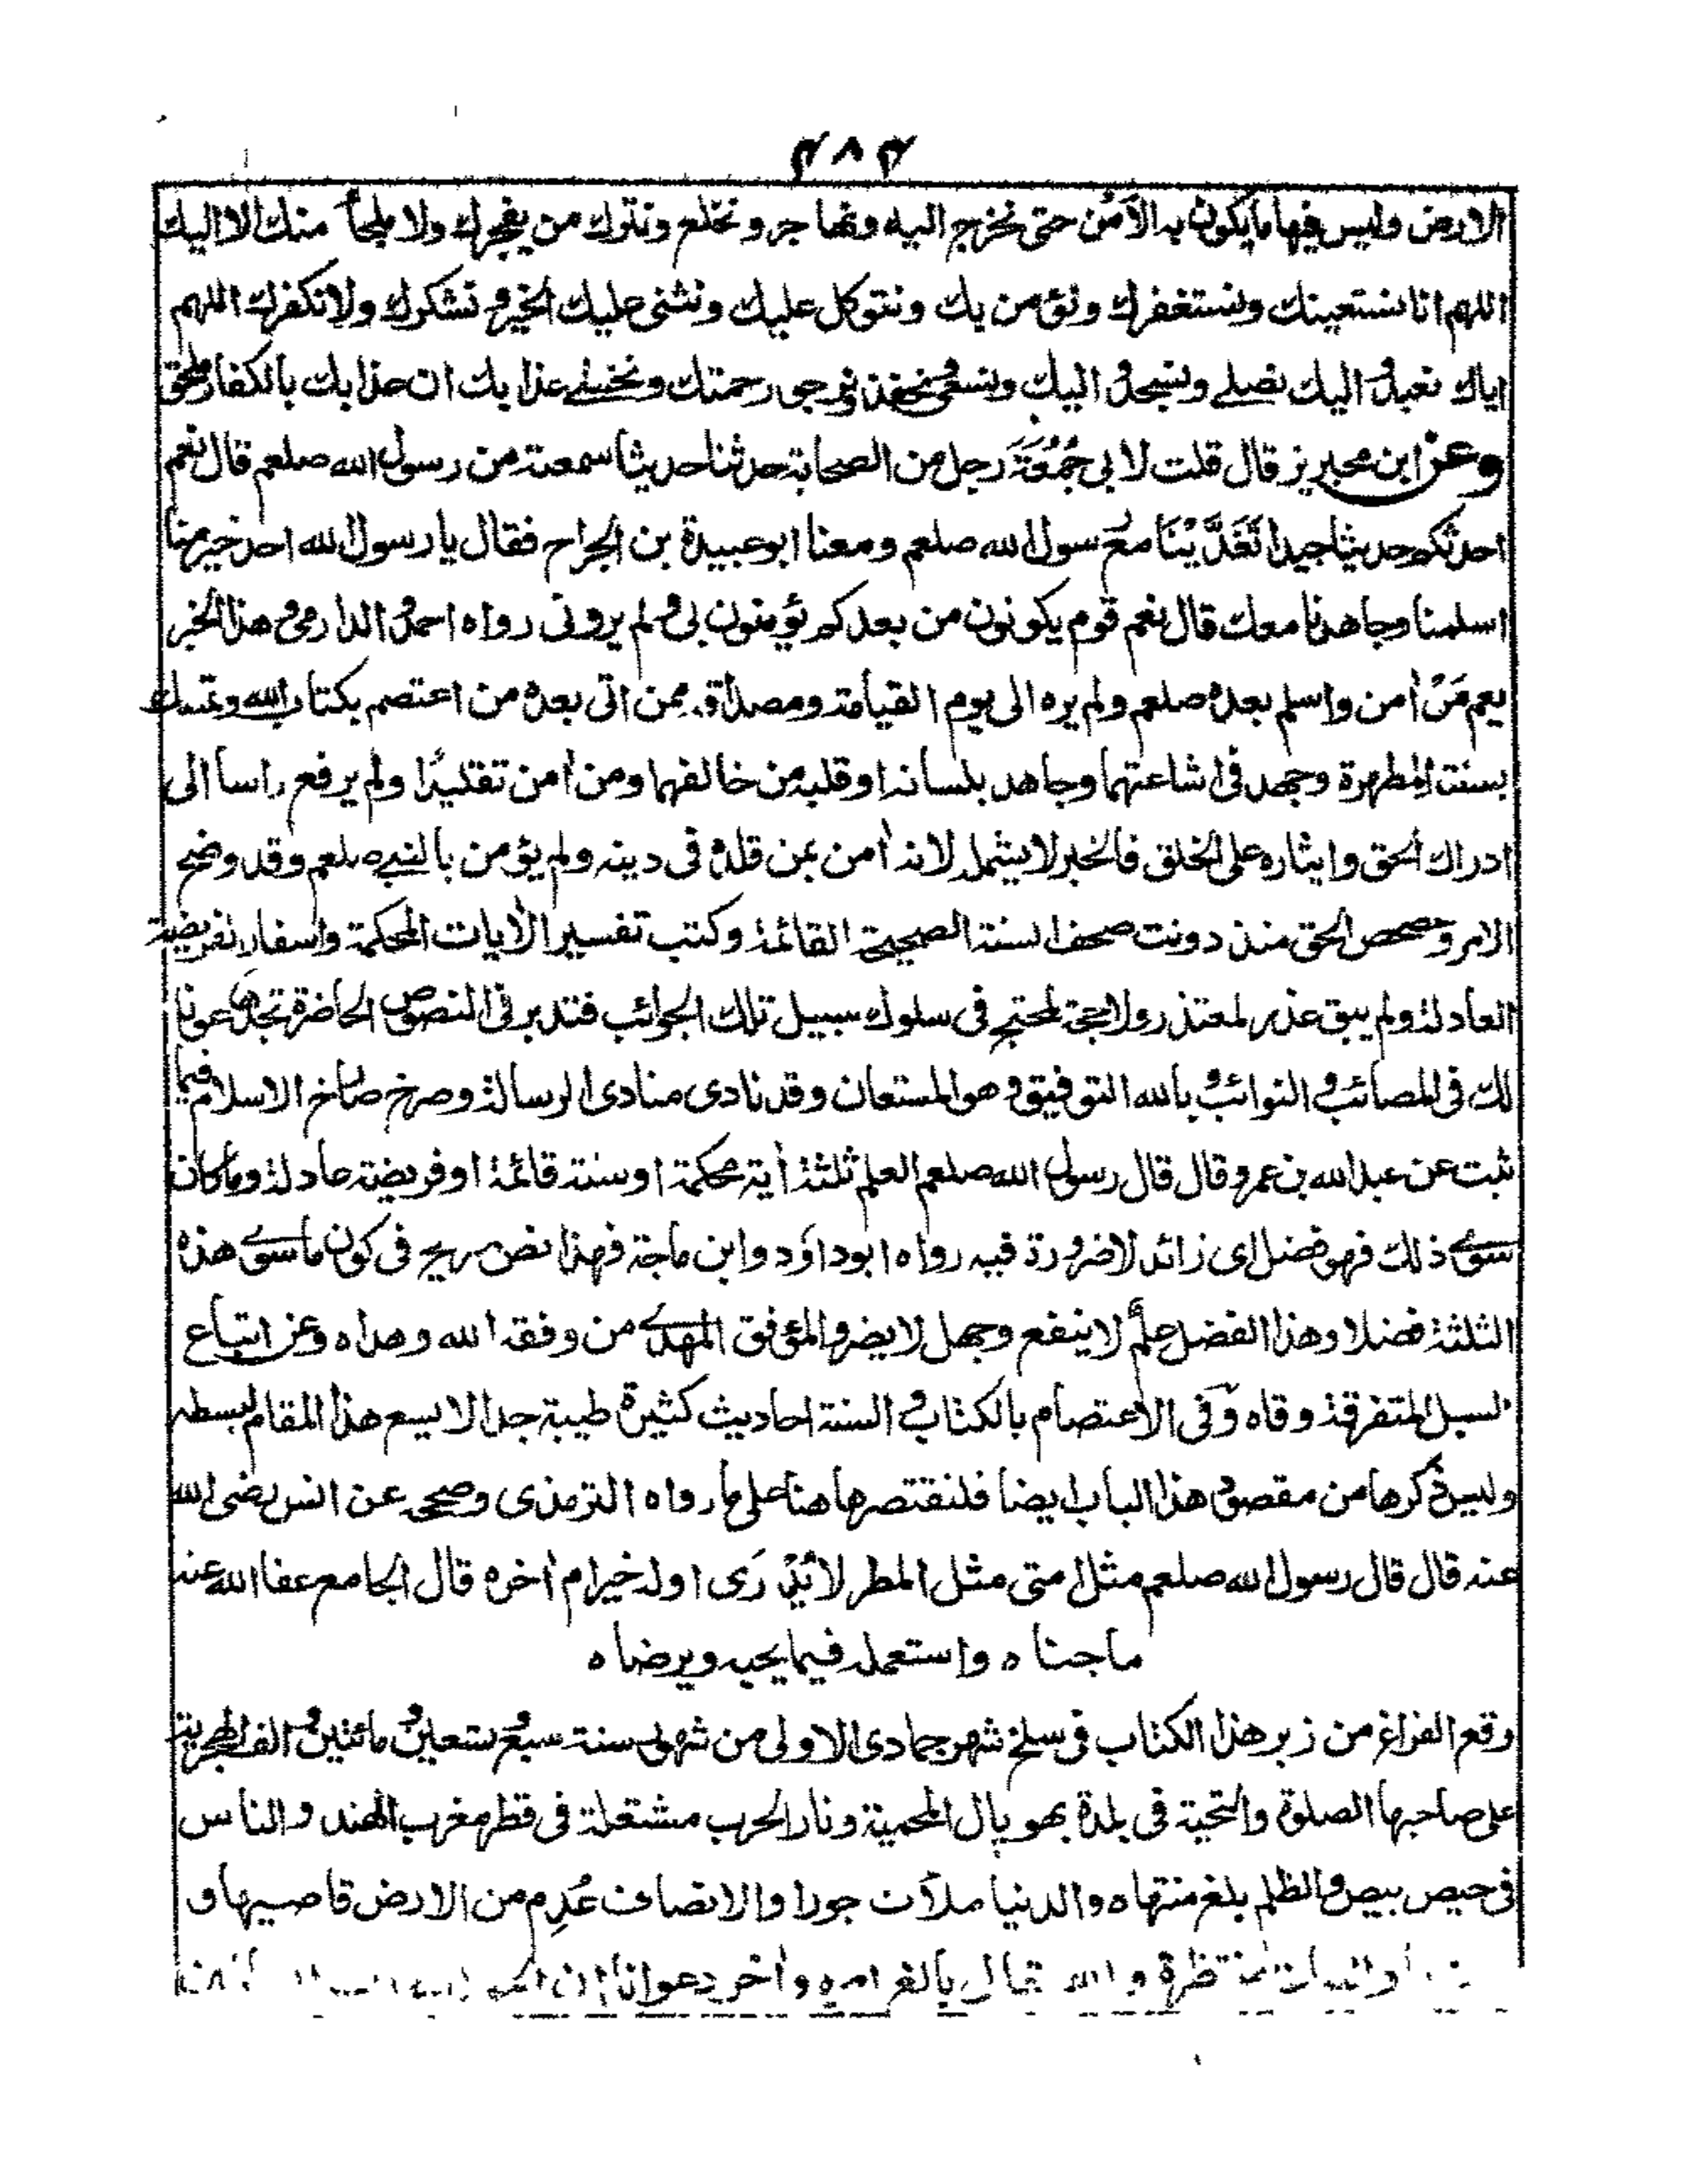 ٤٨٤
الارض وليس فيها ما يكون به الأمن حتى نخرج اليه ونهاجر و نخلع ونترك من يفجرك ولا ملجأ منك الا اليك
اللهم انا نستعينك ونستغفرك ونؤمن بك ونتوكل عليك ونثنى عليك الخير ونشكرك ولا نكفرك اللهم
اياك نعبد اليك نصلے ونسجد و اليك ونسعى ونحفد نرجى رحمتك ونخشے عذابك ان عذابك بالكفار ملحق
وعن ابن محيريز قال قلت لابى جُمُعَةَ رجل من الصحابة حدثنا حديثا سمعته من رسول الله صلعم قال نعم
احدثكم حديثا جيدا تَغَدَّيْنَا مع رسول الله صلعم ومعنا ابو عبيدة بن الجراح فقال يا رسول الله احد خير منا
اسلمنا وجاهدنا معك قال نعم قوم يكونون من بعدكم يؤمنون بى ولم يرونى رواه احمد والدارمى وهذا الخبر
يعم مَنْ أمن واسلم بعده صلعم ولم يره الى يوم القيامة ومصداقه ممن اتى بعده من اعتصم بكتاب الله وتمسك
بسنته المطهرة وجهد فى اشاعتهما وجاهد بلسانه او قلبه من خالفهما ومن أمن تقليدًا ولم يرفع راسا الى
ادراك الحق وايثاره على الخلق فالخبر لا يشمله لانه أمن بمن قلده فى دينه ولم يؤمن بالنبے صلعم وقد وضح
الامر وحصحص الحق منذ دونت صحف السنة الصحيحة القائمة وكتب تفسير الأيات المحكمة واسفار الفريضة
العادلة ولم يبق عذر لمعتذر ولا حجة لمحتج فى سلوك سبيل تلك الجوائب فتدبر فى النصوص الحاضرة تجدها عونا
لك فى المصائب والنوائب وبالله التوفيق وهو المستعان وقد نادى منادى الرسالة وصرخ صارخ الاسلام فيما
ثبت عن عبد الله بن عمرو قال قال رسول الله صلعم العلم ثلثة أية محكمة او سنة قائمة او فريضة عادلة وما كان
سوے ذلك فهو فضل اى زائد لا ضرورة فيه رواه ابو داؤد وابن ماجة فهذا نص صريح فى كون ما سوے هذه
الثلثة فضلا وهذا الفضل علم لا ينفع وجهل لا يضر والموفق المهدے من وفقه الله وهداه وعن اتباع
السبل المتفرقة وقاه وفى الاعتصام بالكتاب والسنة احاديث كثيرة طيبة جدا لا يسع هذا المقام لبسطه
وليس ذكرها من مقصود هذا الباب ايضا فلنقتصر ها هنا على ما رواه الترمذى وصححه عن انس رضى الله
عنه قال قال رسول الله صلعم مثل امتى مثل المطر لا يُدْرَى اوله خير ام أخره قال الجامع عفا الله عنه
ما جناه واستعمله فيما يحبه ويرضاه
وقع الفراغ من زبر هذا الكتاب فى سلخ شهر جمادى الاولى من شهور سنة سبع وتسعين ومائتين والف الهجرية
على صاحبها الصلوة والتحية فى بلدة بهوپال المحمية ونار الحرب مشتعلة فى قطر مغرب الهند والناس
فى حيص بيص والظلم بلغ منتهاه والدنيا ملأت جورا والانصاف عُدِم من الارض قاصيها و
منتظرة والله بالغ امره وأخر دعوانا ان الحمد